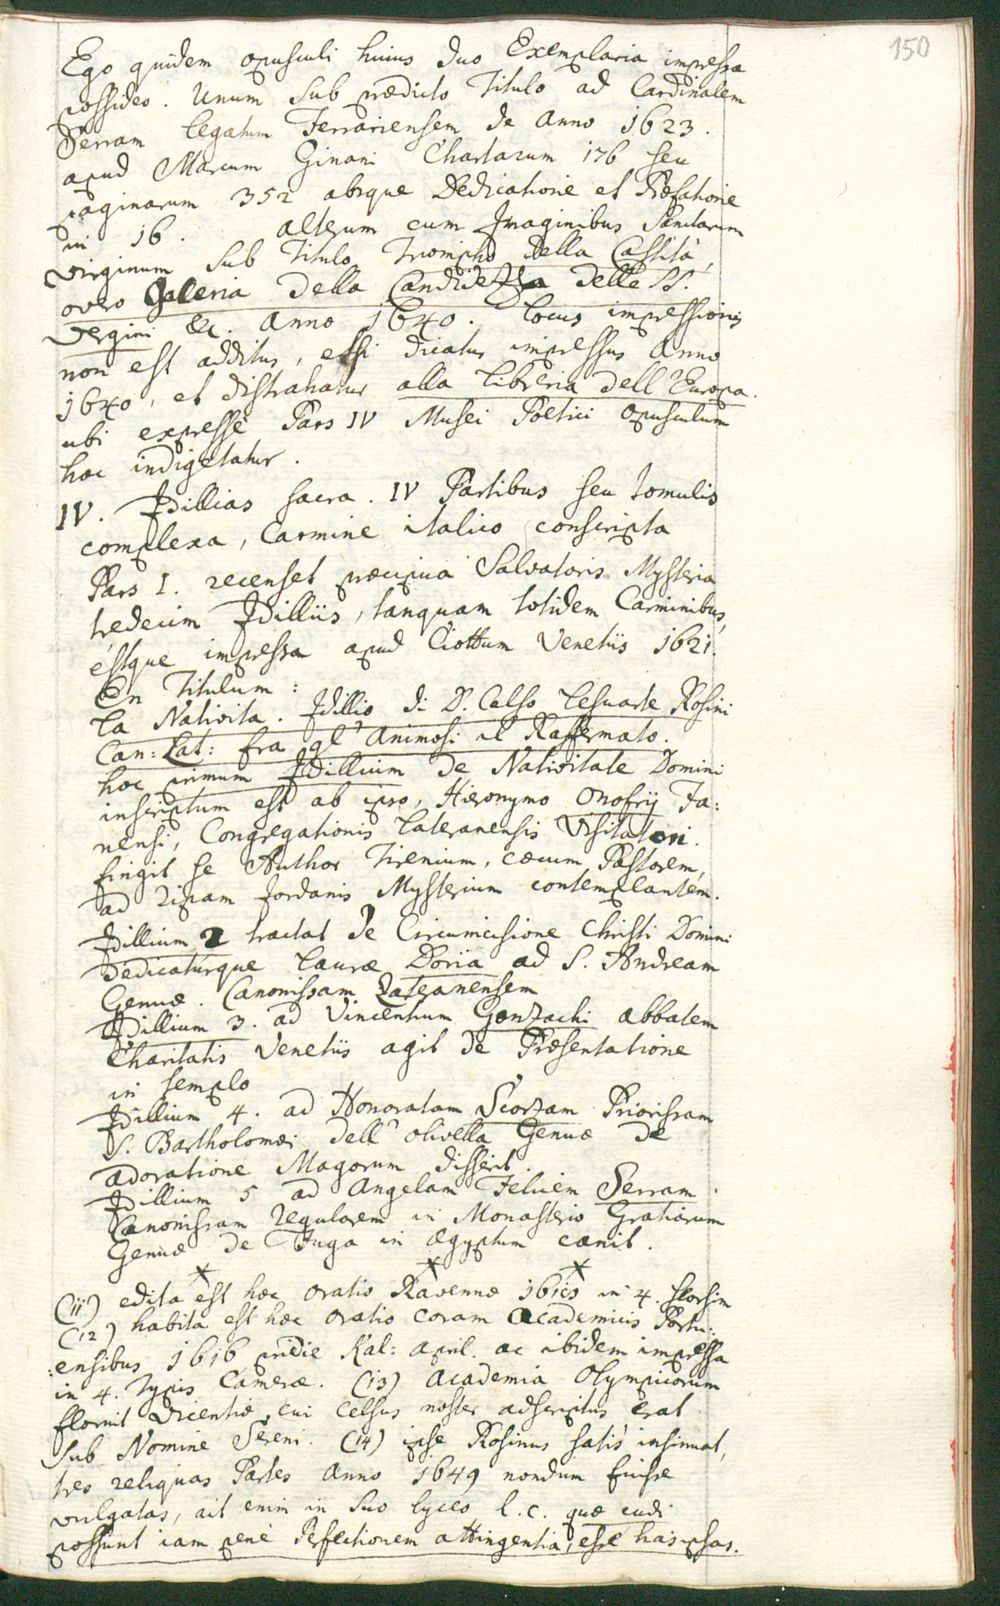 150
Ego quidem opusculi huius duo Exemplaria impressa
possideo. Unum sub prædicto Titulo ad Cardinalem
Serram Legatum Ferrariensem de Anno 1623.
apud Marcum Ginani Chartarum 176 seu
paginarum 352 absque Dedicatione et Præfatione
in 16. alterum cum Imaginibus Sanctarum
Virginum sub Titulo Triompho della Castità,
overo Galeria della Candidezza delle SS.
Vergini &c. Anno 1640. Locus impressionis
non est additus, etsi dicatur impressus Anno
1640, et distrahatur alla Libreria dell'Europa.
ubi expressè Pars IV Musei Poetici opusculum
hoc indigetatur.
IV. Idillias sacra. IV Partibus seu tomulis
complexa, Carmine italico conscripta
Pars I. recenset præcipua Salvatoris Mysteria
tredecim Idilliis, tanquam totidem Carminibus,
éstque impressa apud Ciottum Venetiis 1621.
En Titulum:
La Nativita. Idillio di D. Celso Lesuarte Rosini
Can: Lat: fra gl' Animosi il Raffermato.
hoc primum Idillium de Nativitate Domini
inscriptum est ab ipso, Hieronymo Onofrij Fa:
nensi, Congregationis Lateranensis Visitatori.
fingit se Author Tirenium, cæcum Pastorem,
ad ripam Jordanis Mysterium contemplantem.
Idillium 2 tractat de Circumcisione Christi Domini
dedicaturque Lauræ Doria ad S. Andream
Genuæ. Canonissam Lateranensem
Idillium 3. ad Vincentium Gonzachi abbatem
Charitatis Venetiis agit de Præsentatione
in templo
Idillium 4. ad Honoratam Scorzam Priorissam
S. Bartholomæi dell' olivella Genuæ de
adoratione Magorum disserit.
Idillium 5 ad Angelam Felicem Serram
Canonissam regularem in Monasterio Gratiarum
Genuæ de Fuga in ægyptum canit.
(11) edita est hæc oratio Ravennæ in 4. seorsim
(12) habita est hæc oratio coram Academicis Portu:
:ensibus 1616 pridie Kal: April. ac ibidem impressa
in 4. typis Cameræ. (13) Academia Olympicorum
floruit Vicentiæ, cui Celsus noster adscriptus erat
sub Nomine Sereni. (14) ipse Rosinus satis insinuat,
tres reliquas Partes Anno 1649 nondum fuisse
vulgatas, ait enim in suo lyceo l.c. quæ cudi
possunt iam penè Perfectionem attingentia, esse has ipsas.